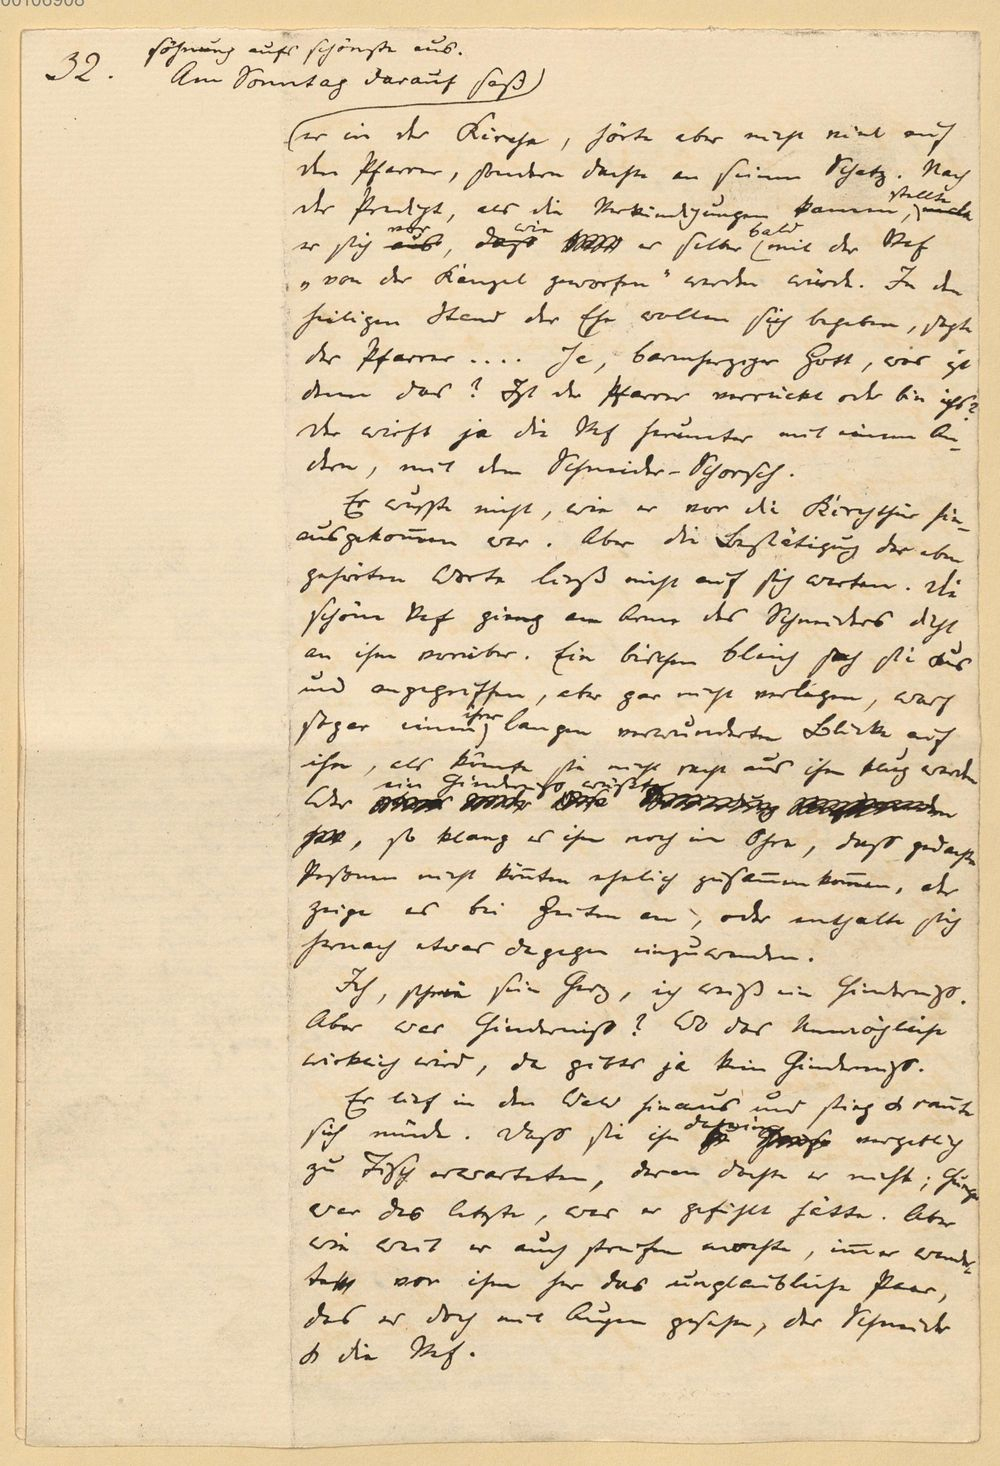 00106908
32.
söhnung aufs schönste aus.
Am Sonntag darauf saß
er in der Kirche, hörte aber nicht viel auf
den Pfarrer, sondern dachte an seinen Schatz. Nach
der Predigt, als die Verkündigungen kamen, stellte
er sich vor, wie er selber bald mit der Vef
„von der Kanzel geworfen" werden würde. In den
heiligen Stand der Ehe wollen sich begeben, sagte
der Pfarrer .... Ja, barmherziger Gott, was ist
denn das? Ist der Pfarrer verrückt oder bin ichs?
Der wirft ja die Vef herunter mit einem An-
dern, mit dem Schneider-Schorsch.
Er wußte nicht, wie er vor die Kirchthür hin-
ausgekommen war. Aber die Bestätigung der eben
gehörten Worte ließ nicht auf sich warten. Die
schöne Vef gieng am Arme des Schneiders dicht
an ihm vorüber. Ein bischen bleich sah sie aus
und angegriffen, aber gar nicht verlegen, warf
sogar einen ihrer langen verwunderten Blicke auf
ihn, als könnte sie nicht recht aus ihm klug werden
Wer ein Hinderniß wüßte
, so klang es ihm noch im Ohre, daß gedachte
Personen nicht könnten ehelich zusammenkommen, der
zeige es bei Zeiten an, oder enthalte sich
hernach etwas dagegen einzuwenden.
Ich, schrie sein Herz, ich weiß ein Hinderniß.
Aber was Hinderniß? Wo das Unmögliche
wirklich wird, da gibts ja kein Hinderniß.
Er lief in den Wald hinaus und stieg & rannte
sich müde. Daß sie ihn daheim vergeblich
zu Tisch erwarteten, daran dachte er nicht; Hunger
war das letzte, was er gefühlt hätte. Aber
wie weit er auch streifen mochte, immer wander-
te vor ihm her das unglaubliche Paar,
das er doch mit Augen gesehen, der Schneider
& die Vef.